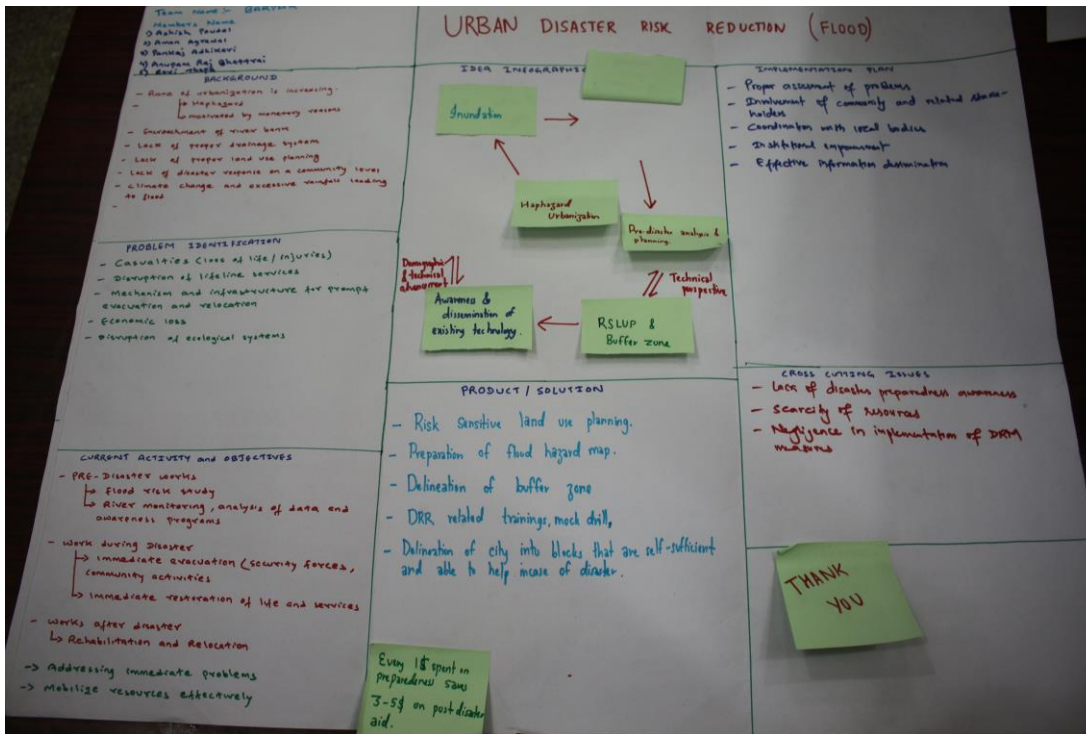 Team Name :-
Members Name
1) Ashish Paudel
2) Aman Agrawal
3) Pankaj Adhikari
4) Anupam Raj Bhattrai
URBAN DISASTER RISK REDUCTION (FLOOD)
BACKGROUND
- Rate of urbanization is increasing.
↳ Haphazard
↳ motivated by monetary reasons
- Encroachment of river bank
- Lack of proper drainage system
- Lack of proper land use planning
- Lack of disaster response on a community level
- Climate change and excessive rainfall leading
to flood
-
PROBLEM IDENTIFICATION
- Casualties (loss of life / injuries)
- Disruption of lifeline services
- Mechanism and infrastructure for prompt
evacuation and relocation
- Economic loss
- Disruption of ecological systems
CURRENT ACTIVITY and OBJECTIVES
- PRE-Disaster works
↳ Flood risk study
↳ River monitoring, analysis of data and
awareness programs
- Work during Disaster
↳ Immediate evacuation (security forces,
community activities
↳ Immediate restoration of life and services
- Works after disaster
↳ Rehabilitation and Relocation
→ Addressing immediate problems
→ Mobilize resources effectively
IDEA INFOGRAPHIC
Inundation
Haphazard
Urbanization
Pre-disaster analysis &
planning.
Demographic
& technical
Technical
perspective
Awareness &
dissemination of
existing technology.
RSLUP &
Buffer zone
PRODUCT / SOLUTION
- Risk Sensitive land use planning.
- Preparation of flood hazard map.
- Delineation of buffer zone
- DRR related trainings, mock drill,
- Delineation of city into blocks that are self-sufficient
and able to help incase of disaster.
Every 1$ spent on
preparedness saves
3-5$ on post disaster
aid.
IMPLEMENTATION PLAN
- Proper assesment of problems
- Involvement of community and related stake-
holders
- Coordination with local bodies
- Institutional empowerment
- Effective information dissemination
CROSS CUTTING ISSUES
- Lack of disaster preparedness awareness
- Scarcity of resources
- Negligence in implementation of DRM
measures
THANK
YOU